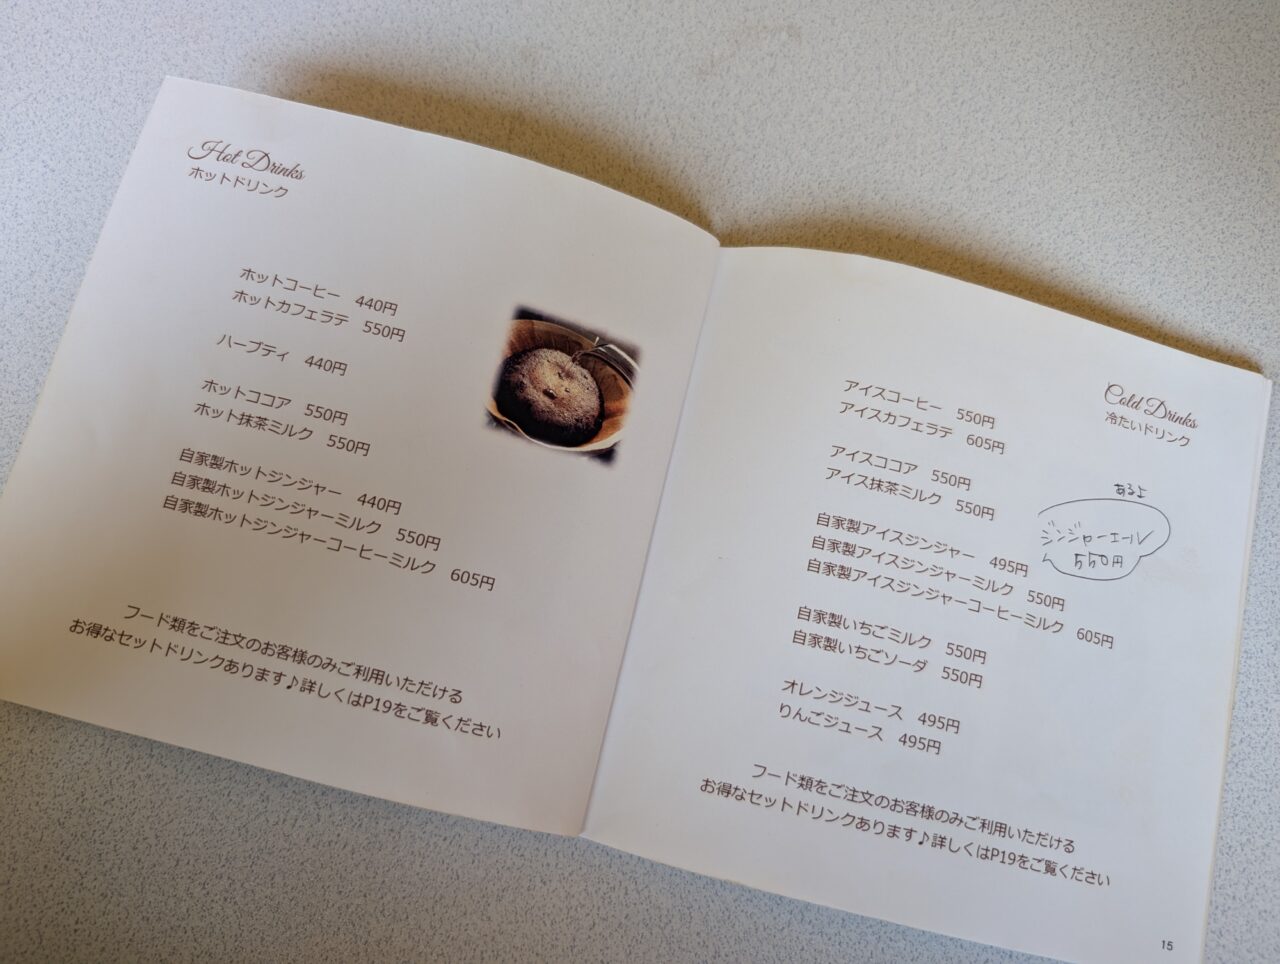 Hot Drinks
ホットドリンク
ホットコーヒー 440円
ホットカフェラテ 550円
ハーブティ 440円
ホットココア 550円
ホット抹茶ミルク 550円
自家製ホットジンジャー 440円
自家製ホットジンジャーミルク 550円
自家製ホットジンジャーコーヒーミルク 605円
フード類をご注文のお客様のみご利用いただける
お得なセットドリンクあります♪詳しくはP19をご覧ください
Cold Drinks
冷たいドリンク
アイスコーヒー 550円
アイスカフェラテ 605円
アイスココア 550円
アイス抹茶ミルク 550円
あるよ
ジンジャーエール
550円
自家製アイスジンジャー 495円
自家製アイスジンジャーミルク 550円
自家製アイスジンジャーコーヒーミルク 605円
自家製いちごミルク 550円
自家製いちごソーダ 550円
オレンジジュース 495円
りんごジュース 495円
フード類をご注文のお客様のみご利用いただける
お得なセットドリンクあります♪詳しくはP19をご覧ください
15